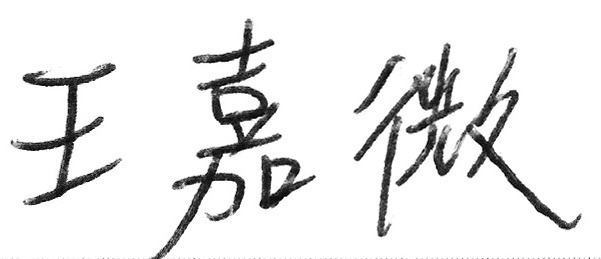 王嘉微